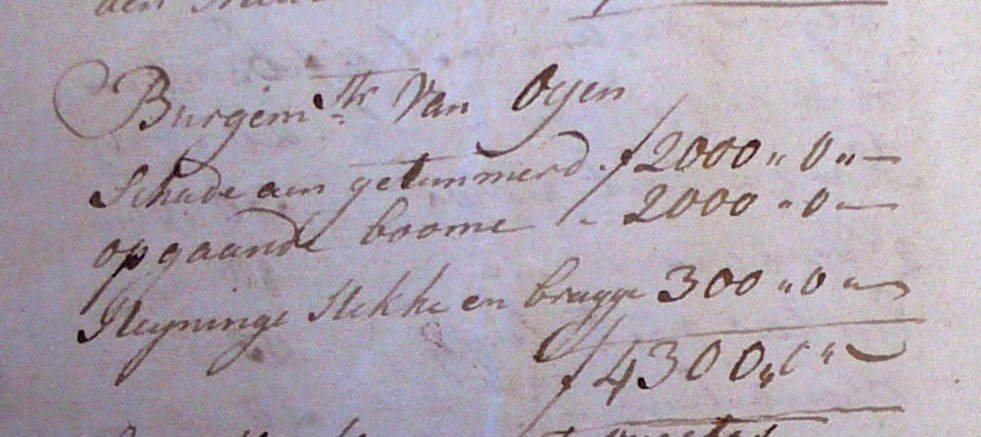 Burgem.str Van Oyen
Schade aen getimmerd. ƒ 2000 „ 0 „ —
opgaande boome „ 2000 „ 0 —
Heyninge Hekke en brugge 300 „ 0 „ —
ƒ 4300 „ 0 „ —